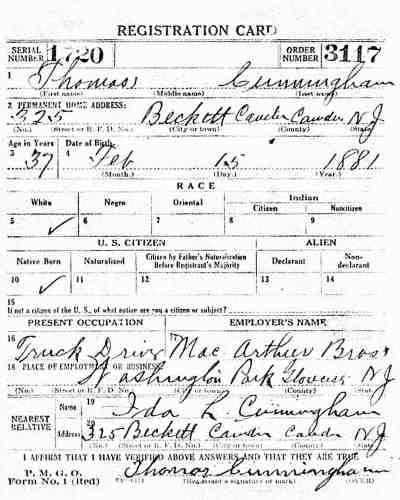 REGISTRATION CARD
SERIAL NUMBER 1720 ORDER NUMBER 3117
1 Thomas Cunningham
(First name) (Middle name) (Last name)
2 PERMANENT HOME ADDRESS:
325 Beckett Camden Camden N J
(No.) (Street or R. F. D. No.) (City or town) (County) (State)
Age in Years Date of Birth
3 37 4 Feb 15 1881
(Month.) (Day.) (Year.)
RACE
White Negro Oriental Indian
Citizen Noncitizen
5 ✓ 6 7 8 9
U. S. CITIZEN ALIEN
Native Born Naturalized Citizen by Father's Naturalization Before Registrant's Majority Declarant Non-declarant
10 ✓ 11 12 13 14
15
If not a citizen of the U. S., of what nation are you a citizen or subject?
PRESENT OCCUPATION EMPLOYER'S NAME
16 Truck Driver 17 Mac Arthur Bros
18 PLACE OF EMPLOYMENT OR BUSINESS:
Washington Park Glouces N J
(No.) (Street or R. F. D. No.) (City or town) (County) (State)
NEAREST RELATIVE Name 19 Ida L. Cunningham
Address 20 325 Beckett Camden Camden N J
(No.) (Street or R. F. D. No.) (City or town) (County) (State)
I AFFIRM THAT I HAVE VERIFIED ABOVE ANSWERS AND THAT THEY ARE TRUE
P. M. G. O.
Form No. 1 (Red) Thomas Cunningham
(Registrant's signature or mark) (OVER)